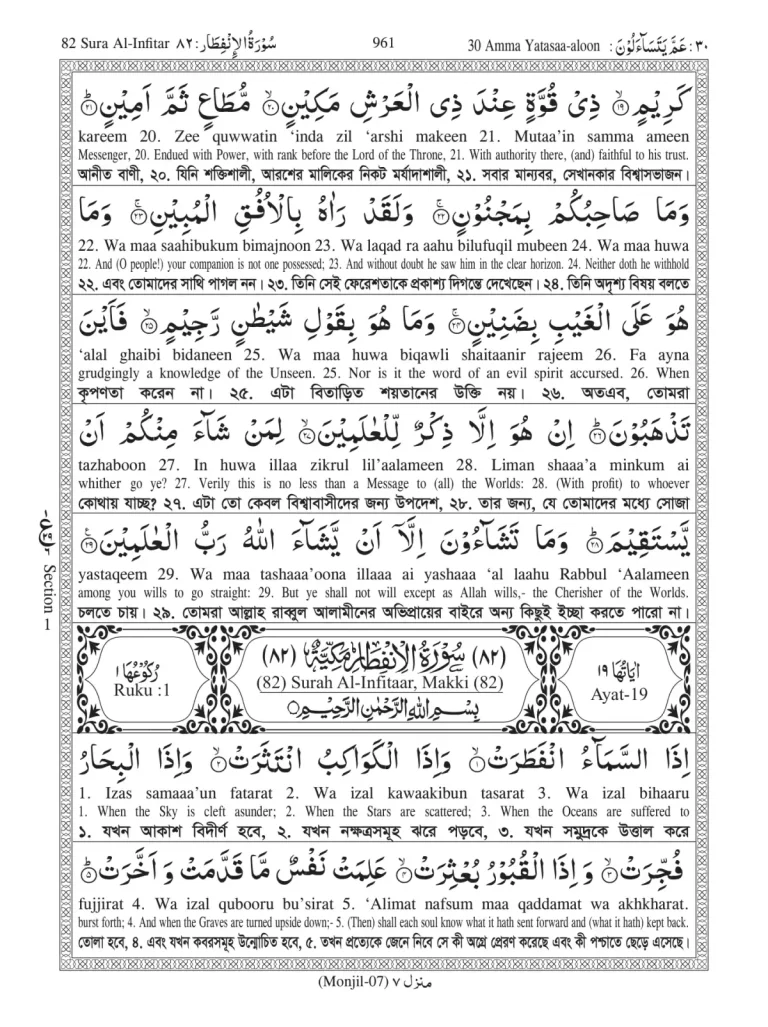 82 Sura Al-Infitar ٨٢: سُوْرَةُ الْاِنْفِطَار 961 30 Amma Yatasaa-aloon : عَمَّ يَتَسَآءَلُوْنَ :٣٠
كَرِيْمٍ ۙ﴿١٩﴾ ذِىْ قُوَّةٍ عِنْدَ ذِى الْعَرْشِ مَكِيْنٍ ۙ﴿٢٠﴾ مُّطَاعٍ ثَمَّ اَمِيْنٍ ؕ﴿٢١﴾
kareem 20. Zee quwwatin ‘inda zil ‘arshi makeen 21. Mutaa’in samma ameen
Messenger, 20. Endued with Power, with rank before the Lord of the Throne, 21. With authority there, (and) faithful to his trust.
আনীত বাণী, ২০. যিনি শক্তিশালী, আরশের মালিকের নিকট মর্যাদাশালী, ২১. সবার মান্যবর, সেখানকার বিশ্বাসভাজন।
وَمَا صَاحِبُكُمْ بِمَجْنُوْنٍ ۚ﴿٢٢﴾ وَلَقَدْ رَاٰهُ بِالْاُفُقِ الْمُبِيْنِ ۚ﴿٢٣﴾ وَمَا
22. Wa maa saahibukum bimajnoon 23. Wa laqad ra aahu bilufuqil mubeen 24. Wa maa huwa
22. And (O people!) your companion is not one possessed; 23. And without doubt he saw him in the clear horizon. 24. Neither doth he withhold
২২. এবং তোমাদের সাথি পাগল নন। ২৩. তিনি সেই ফেরেশতাকে প্রকাশ্য দিগন্তে দেখেছেন। ২৪. তিনি অদৃশ্য বিষয় বলতে
هُوَ عَلَى الْغَيْبِ بِضَنِيْنٍ ۚ﴿٢٤﴾ وَمَا هُوَ بِقَوْلِ شَيْطٰنٍ رَّجِيْمٍ ۙ﴿٢٥﴾ فَاَيْنَ
‘alal ghaibi bidaneen 25. Wa maa huwa biqawli shaitaanir rajeem 26. Fa ayna
grudgingly a knowledge of the Unseen. 25. Nor is it the word of an evil spirit accursed. 26. When
কৃপণতা করেন না। ২৫. এটা বিতাড়িত শয়তানের উক্তি নয়। ২৬. অতএব, তোমরা
تَذْهَبُوْنَ ؕ﴿٢٦﴾ اِنْ هُوَ اِلَّا ذِكْرٌ لِّلْعٰلَمِيْنَ ۙ﴿٢٧﴾ لِمَنْ شَآءَ مِنْكُمْ اَنْ
tazhaboon 27. In huwa illaa zikrul lil’aalameen 28. Liman shaaa’a minkum ai
whither go ye? 27. Verily this is no less than a Message to (all) the Worlds: 28. (With profit) to whoever
কোথায় যাচ্ছ? ২৭. এটা তো কেবল বিশ্বাবাসীদের জন্য উপদেশ, ২৮. তার জন্য, যে তোমাদের মধ্যে সোজা
يَّسْتَقِيْمَ ؕ﴿٢٨﴾ وَمَا تَشَآءُوْنَ اِلَّاۤ اَنْ يَّشَآءَ اللّٰهُ رَبُّ الْعٰلَمِيْنَ ۧ﴿٢٩﴾
yastaqeem 29. Wa maa tashaaa’oona illaaa ai yashaaa ‘al laahu Rabbul ‘Aalameen
among you wills to go straight: 29. But ye shall not will except as Allah wills,- the Cherisher of the Worlds.
চলতে চায়। ২৯. তোমরা আল্লাহ রাব্বুল আলামীনের অভিপ্রায়ের বাইরে অন্য কিছুই ইচ্ছা করতে পারো না।
Section 1
رُكُوْعُهَا ١
Ruku :1
(٨٢) سُوْرَةُ الْاِنْفِطَارِ مَكِّيَّةٌ (٨٢)
(82) Surah Al-Infitaar, Makki (82)
بِسْمِ اللّٰهِ الرَّحْمٰنِ الرَّحِيْمِ ○
اٰيَاتُهَا ١٩
Ayat-19
اِذَا السَّمَآءُ انْفَطَرَتْ ۙ﴿١﴾ وَاِذَا الْكَوَاكِبُ انْتَثَرَتْ ۙ﴿٢﴾ وَاِذَا الْبِحَارُ
1. Izas samaaa’un fatarat 2. Wa izal kawaakibun tasarat 3. Wa izal bihaaru
1. When the Sky is cleft asunder; 2. When the Stars are scattered; 3. When the Oceans are suffered to
১. যখন আকাশ বিদীর্ণ হবে, ২. যখন নক্ষত্রসমূহ ঝরে পড়বে, ৩. যখন সমুদ্রকে উত্তাল করে
فُجِّرَتْ ۙ﴿٣﴾ وَ اِذَا الْقُبُوْرُ بُعْثِرَتْ ۙ﴿٤﴾ عَلِمَتْ نَفْسٌ مَّا قَدَّمَتْ وَ اَخَّرَتْ ؕ﴿٥﴾
fujjirat 4. Wa izal qubooru bu’sirat 5. ‘Alimat nafsum maa qaddamat wa akhkharat.
burst forth; 4. And when the Graves are turned upside down;- 5. (Then) shall each soul know what it hath sent forward and (what it hath) kept back.
তোলা হবে, ৪. এবং যখন কবরসমূহ উন্মোচিত হবে, ৫. তখন প্রত্যেকে জেনে নিবে সে কী অগ্রে প্রেরণ করেছে এবং কী পশ্চাতে ছেড়ে এসেছে।
(Monjil-07) منزل ٧